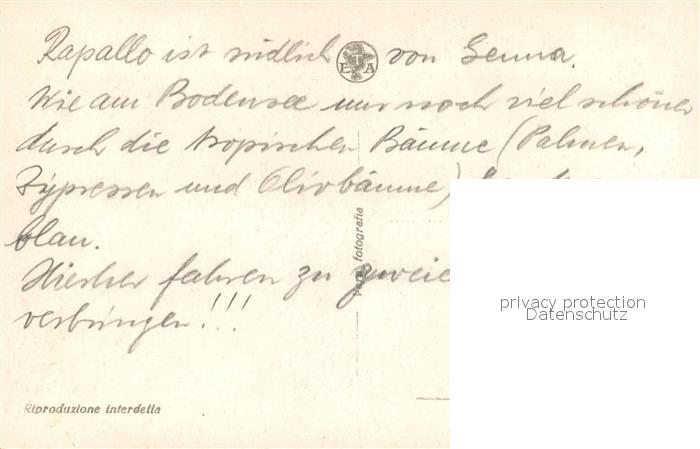 Rapallo ist südlich von Genua.
Wie am Bodensee nur noch viel schöner
durch die tropischen Bäume (Palmen,
Zypressen und Olivbäume)
blau.
Hierher fahren zu zweie
verbringen!!!
vera fotografia
Riproduzione interdetta
privacy protection
Datenschutz